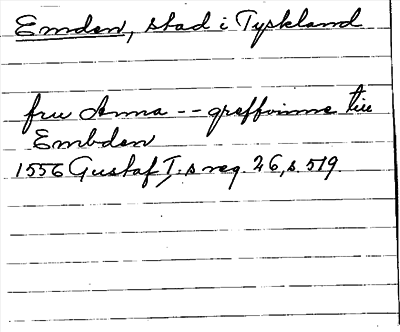 Emden, stad i Tyskland
fru Anna -- greffvinne till
Embden
1556 Gustaf I:s reg. 26, s. 519.